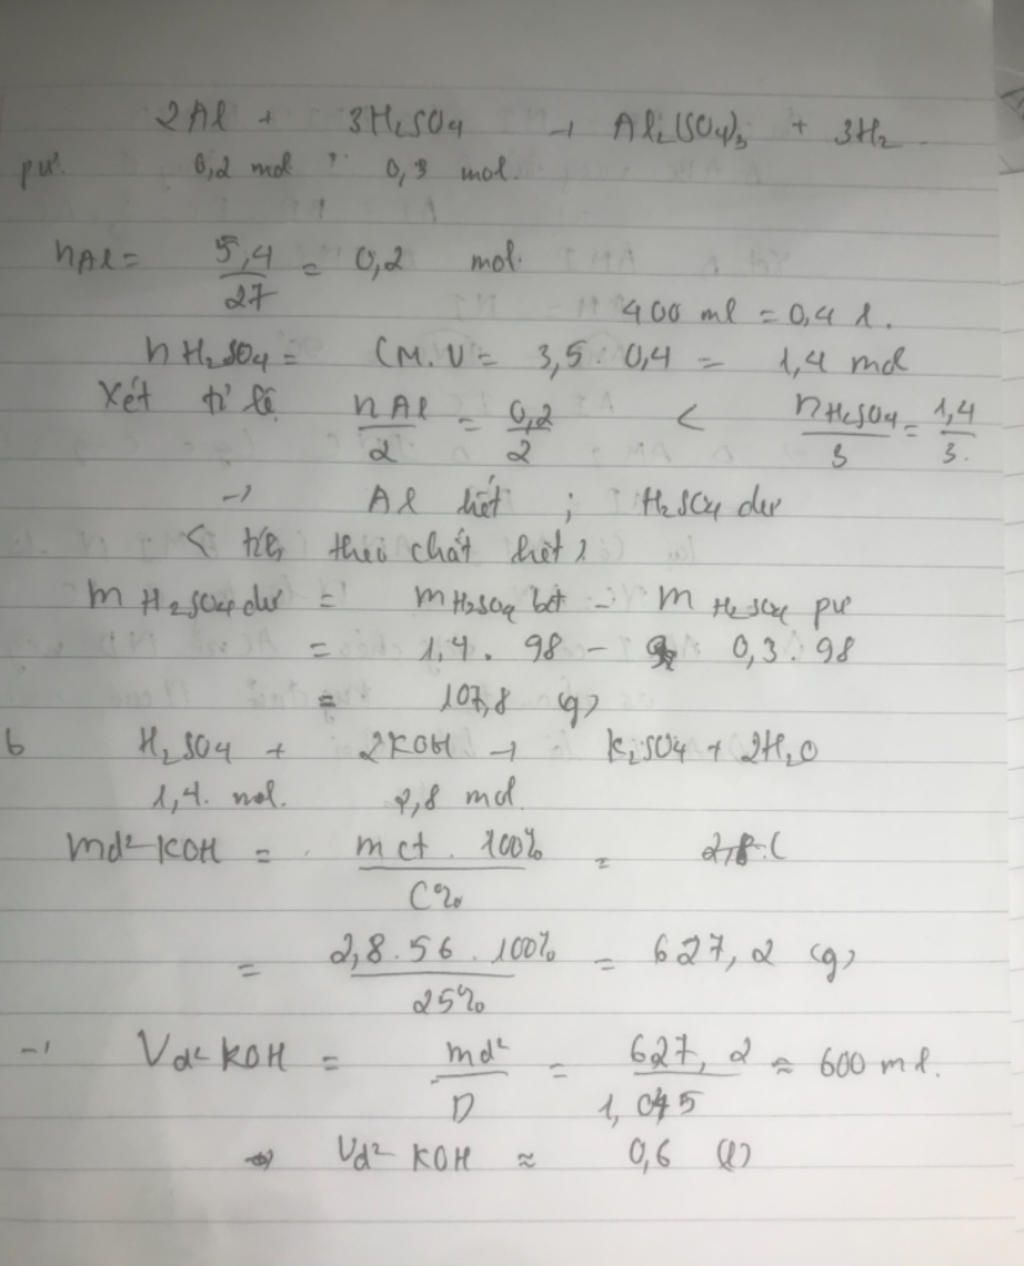 2Al + 3H₂SO₄ → Al₂(SO₄)₃ + 3H₂
pư: 0,2 mol 0,3 mol.
nAl = 5,4/27 = 0,2 mol.
400 ml = 0,4 l.
nH₂SO₄ = CM.V = 3,5.0,4 = 1,4 mol
Xét tỉ lệ nAl/2 = 0,2/2 < nH₂SO₄/3 = 1,4/3.
→ Al hết ; H₂SO₄ dư
theo chất hết)
m H₂SO₄ dư = m H₂SO₄ bđ - m H₂SO₄ pư
= 1,4. 98 - 0,3.98
= 107,8 (g)
b H₂SO₄ + 2KOH → K₂SO₄ + 2H₂O
1,4. mol. 2,8 mol
md² KOH = mct . 100%/C% =
= 2,8.56.100%/25% = 627,2 (g)
→ Vd² KOH = md²/D = 627,2/1,045 ≈ 600 ml.
→ Vd² KOH ≈ 0,6 (l)